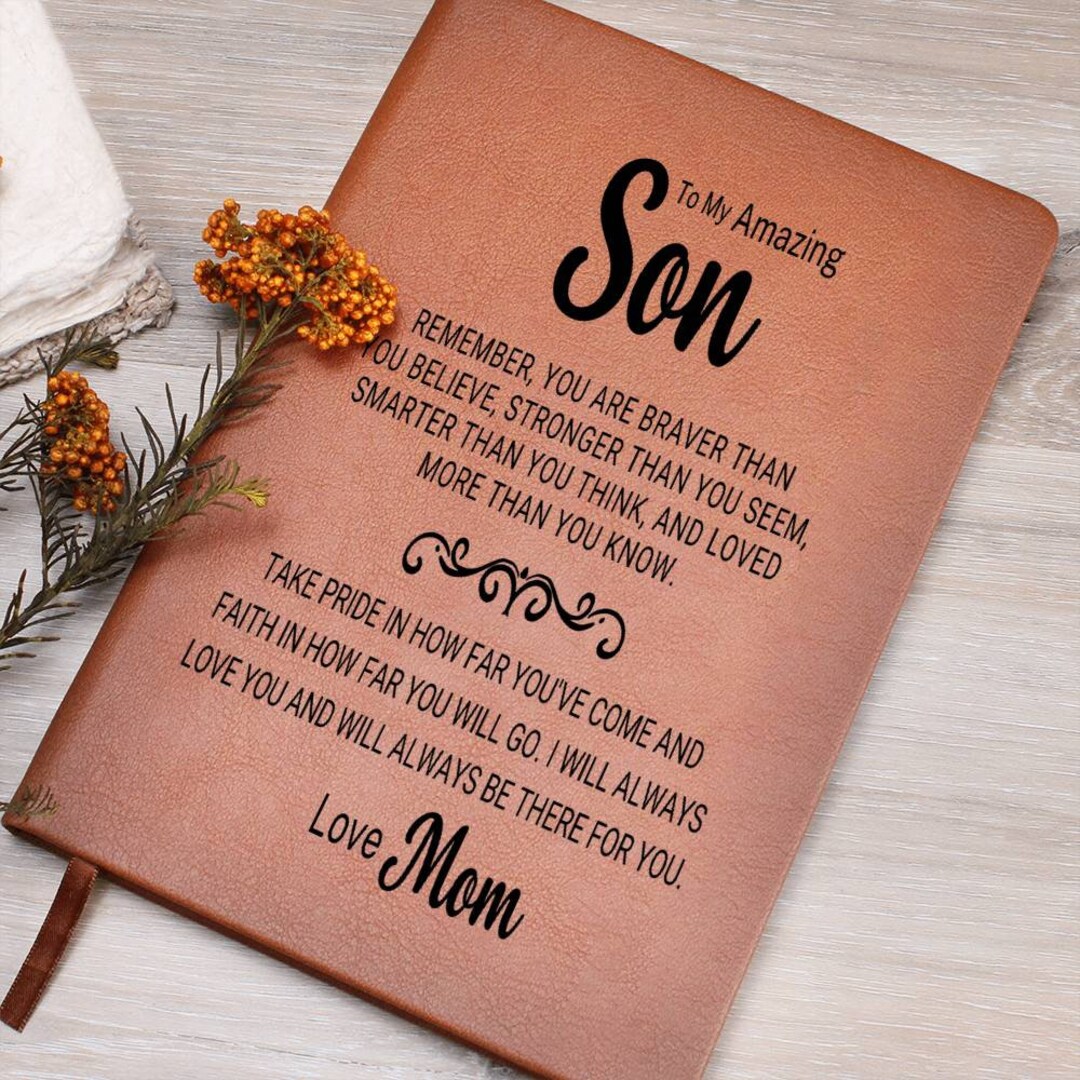 To My Amazing
Son
REMEMBER, YOU ARE BRAVER THAN
YOU BELIEVE, STRONGER THAN YOU SEEM,
SMARTER THAN YOU THINK, AND LOVED
MORE THAN YOU KNOW.
TAKE PRIDE IN HOW FAR YOU'VE COME AND
FAITH IN HOW FAR YOU WILL GO. I WILL ALWAYS
LOVE YOU AND WILL ALWAYS BE THERE FOR YOU.
Love Mom